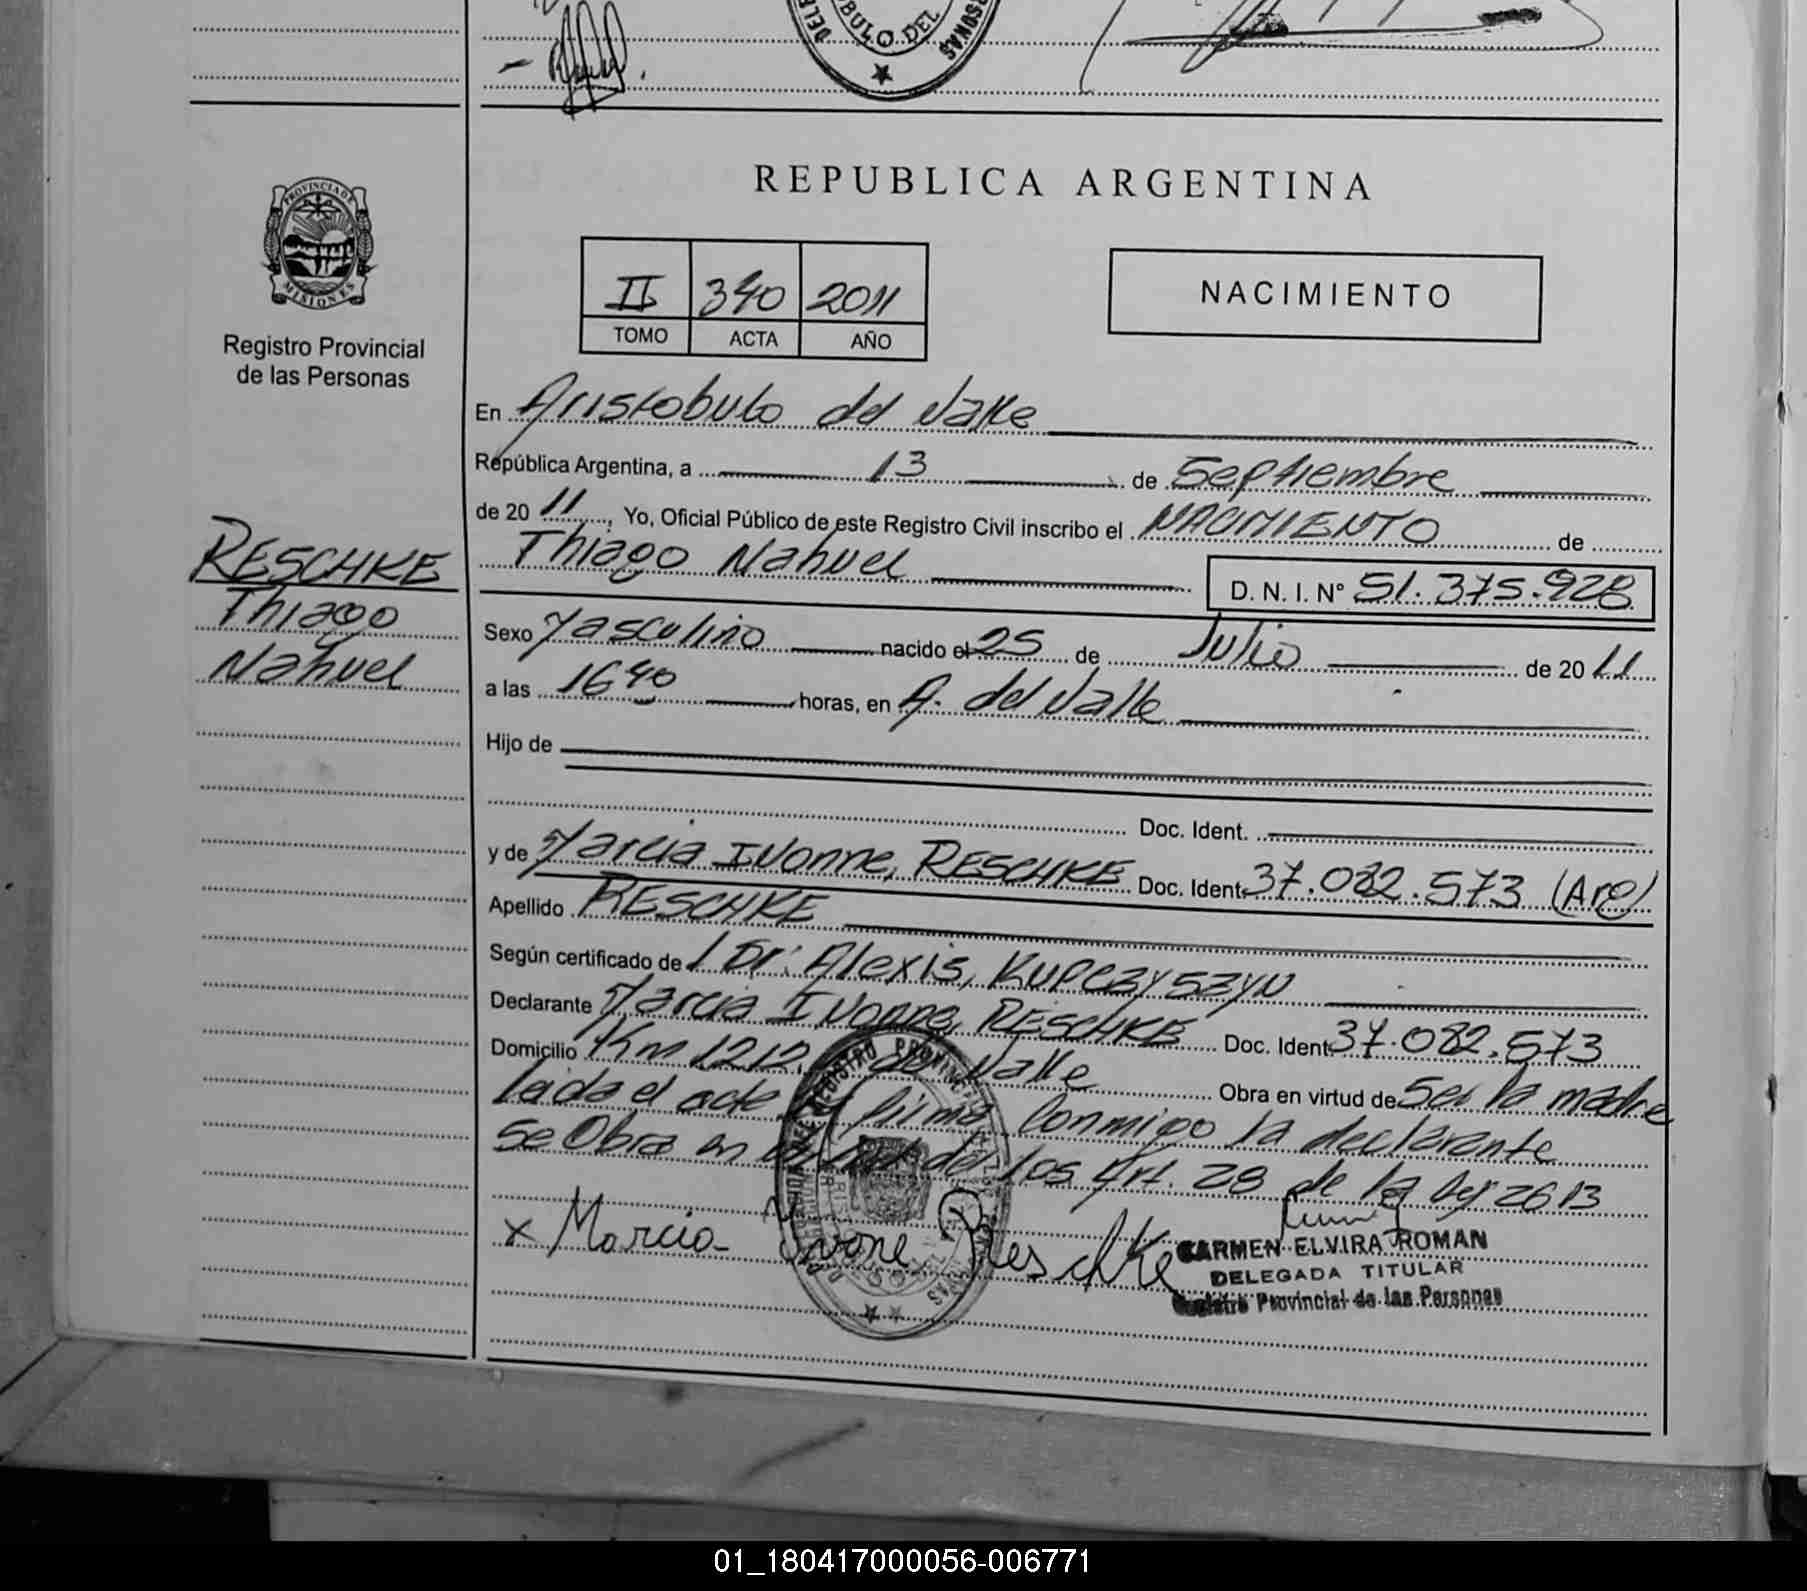 DELE
OBULO DEL
SONAS
REPUBLICA ARGENTINA
PROVINCIA D
MISIONES
Registro Provincial
de las Personas
II 340 2011
TOMO ACTA AÑO
NACIMIENTO
En Aristobulo del Valle
República Argentina, a 13 de Septiembre
de 20 11, Yo, Oficial Público de este Registro Civil inscribo el NACIMIENTO de
Thiago Nahuel D. N. I. Nº 51.375.928
RESCHKE
Thiago
Nahuel
Sexo Masculino nacido el 25 de Julio de 20 11
a las 1640 horas, en A. del Valle
Hijo de
Doc. Ident.
y de Marcia Ivonne, RESCHKE Doc. Ident. 37.082.573 (Arg)
Apellido RESCHKE
Según certificado de l Dr. Alexis, KUPCZYSZYN
Declarante Marcia Ivonne, RESCHKE Doc. Ident. 37.082.573
Domicilio Km 1212, del Valle Obra en virtud de Ser la madre
leida el acta firma conmigo la declarante
Se Obra en de los Art. 28 de la ley 26413
x Marcia Ivone Reschke
CARMEN ELVIRA ROMAN
DELEGADA TITULAR
Registro Provincial de las Personas
REGISTRO PROVINCIAL
01_180417000056-006771